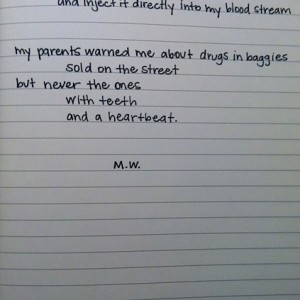 and inject it directly into my blood stream
my parents warned me about drugs in baggies
sold on the street
but never the ones
with teeth
and a heartbeat.
M.W.